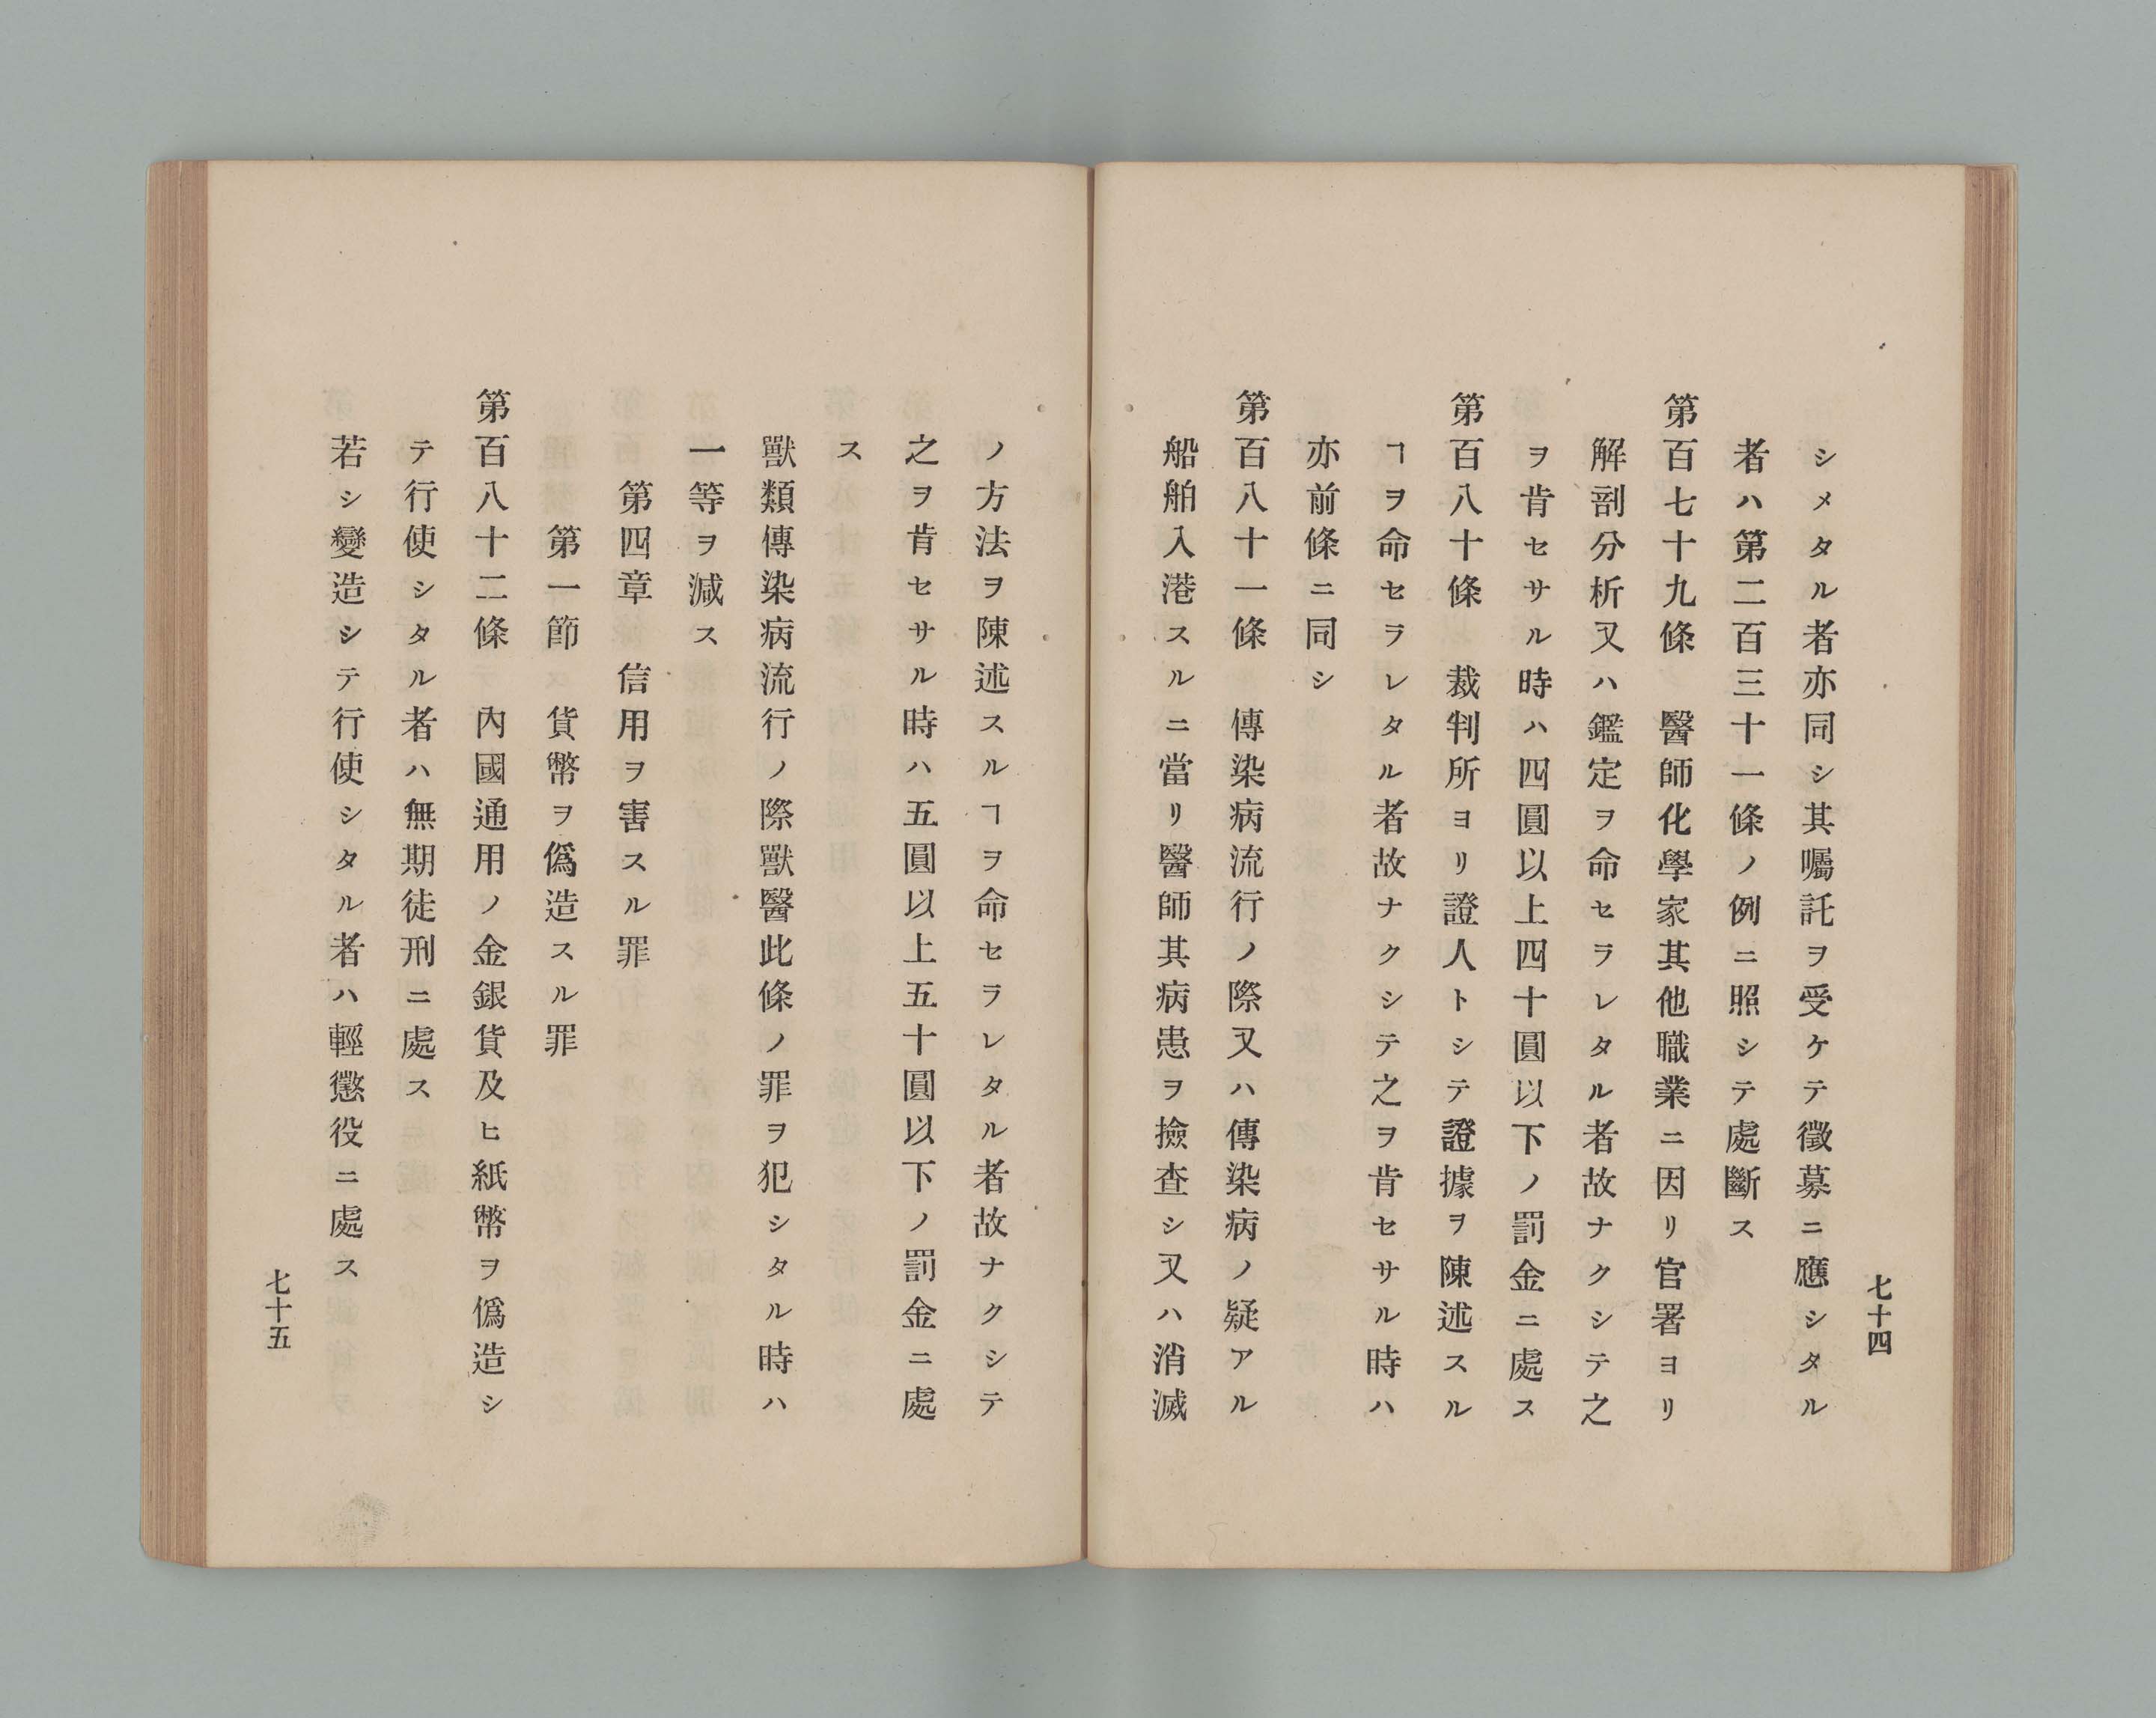 シメタル者亦同シ其囑託ヲ受ケテ徵募ニ應シタル
者ハ第二百三十一條ノ例ニ照シテ處斷ス
第百七十九條　醫師化學家其他職業ニ因リ官署ヨリ
解剖分析又ハ鑑定ヲ命セラレタル者故ナクシテ之
ヲ肯セサル時ハ四圓以上四十圓以下ノ罰金ニ處ス
第百八十條　裁判所ヨリ證人トシテ證據ヲ陳述スル
ヿヲ命セラレタル者故ナクシテ之ヲ肯セサル時ハ
亦前條ニ同シ
第百八十一條　傳染病流行ノ際又ハ傳染病ノ疑アル
船舶入港スルニ當リ醫師其病患ヲ撿查シ又ハ消滅
七十四
ノ方法ヲ陳述スルヿヲ命セラレタル者故ナクシテ
之ヲ肯セサル時ハ五圓以上五十圓以下ノ罰金ニ處
ス
獸類傳染病流行ノ際獸醫此條ノ罪ヲ犯シタル時ハ
一等ヲ減ス
第四章　信用ヲ害スル罪
第一節　貨幣ヲ僞造スル罪
第百八十二條　內國通用ノ金銀貨及ヒ紙幣ヲ僞造シ
テ行使シタル者ハ無期徒刑ニ處ス
若シ變造シテ行使シタル者ハ輕懲役ニ處ス
七十五